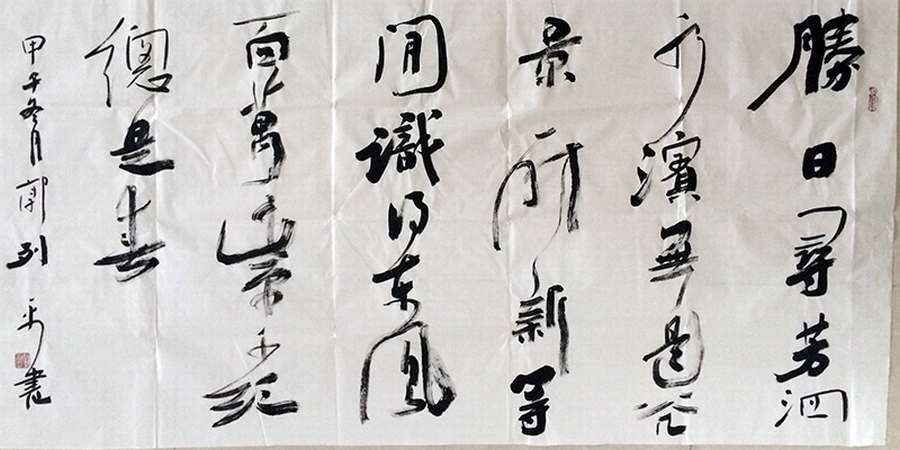 勝日尋芳泗
水濱無邊光
景一時新等
閒識得東風
面萬紫千紅
總是春
甲午冬月郭列書